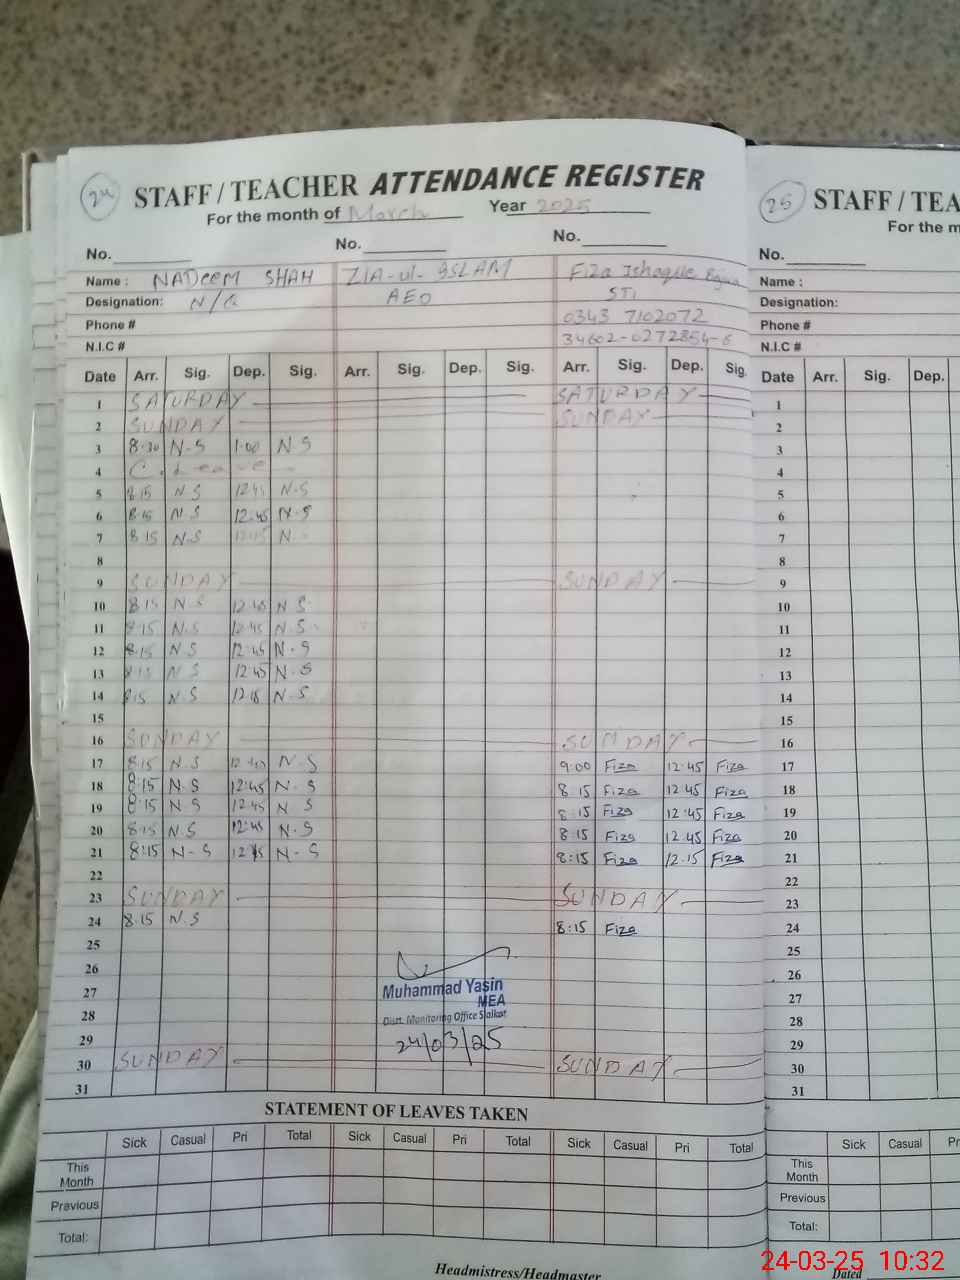 24 STAFF / TEACHER ATTENDANCE REGISTER
For the month of March Year 2025
No. No. No.
Name : NADEEM SHAH ZIA-ul-ISLAM Fiza Ishaque
Designation: AEO STI
Phone # 0343 7102072
N.I.C # 34602-0272854-6
Date Arr. Sig. Dep. Sig. Arr. Sig. Dep. Sig. Arr. Sig. Dep. Sig.
1 SATURDAY SATURDAY
2 SUNDAY SUNDAY
3 8:30 N-S 1:00 N S
4 C. Leave
5 8 15 N S 12 45 N-S
6 8:15 N.S 12:45 N-S
7 8 15 N-S N-
8
9 SUNDAY SUNDAY
10 8 15 N-S 12 45 N S
11 8:15 N.S 12:45 N.S
12 8:15 N S 12:45 N-S
13 8:15 N S 12:45 N-S
14 8 15 N-S N-S
15
16 SUNDAY SUNDAY
17 8:15 N.S 12:45 N.S 9:00 Fiza 12:45 Fiza
18 8:15 N.S 12:45 N.S 8 15 Fiza 12 45 Fiza
19 8:15 N.S 12:45 N S 8:15 Fiza 12:45 Fiza
20 8:15 N.S 12:45 N.S 8 15 Fiza 12.45 Fiza
21 8:15 N-S N-S 8:15 Fiza 12.15 Fiza
22
23 SUNDAY SUNDAY
24 8:15 N.S 8:15 Fiza
25
26
27
28
29
30 SUNDAY SUNDAY
31
Muhammad Yasin
MEA
Distt. Monitoring Office Sialkot
24/03/25
STATEMENT OF LEAVES TAKEN
Sick Casual Pri Total Sick Casual Pri Total Sick Casual Pri Total
This Month
Previous
Total:
Headmistress/Headmaster
25 STAFF / TEA
For the m
No.
Name :
Designation:
Phone #
N.I.C #
Date Arr. Sig. Dep.
1
2
3
4
5
6
7
8
9
10
11
12
13
14
15
16
17
18
19
20
21
22
23
24
25
26
27
28
29
30
31
Sick Casual Pr
This Month
Previous
Total:
Dated
24-03-25 10:32